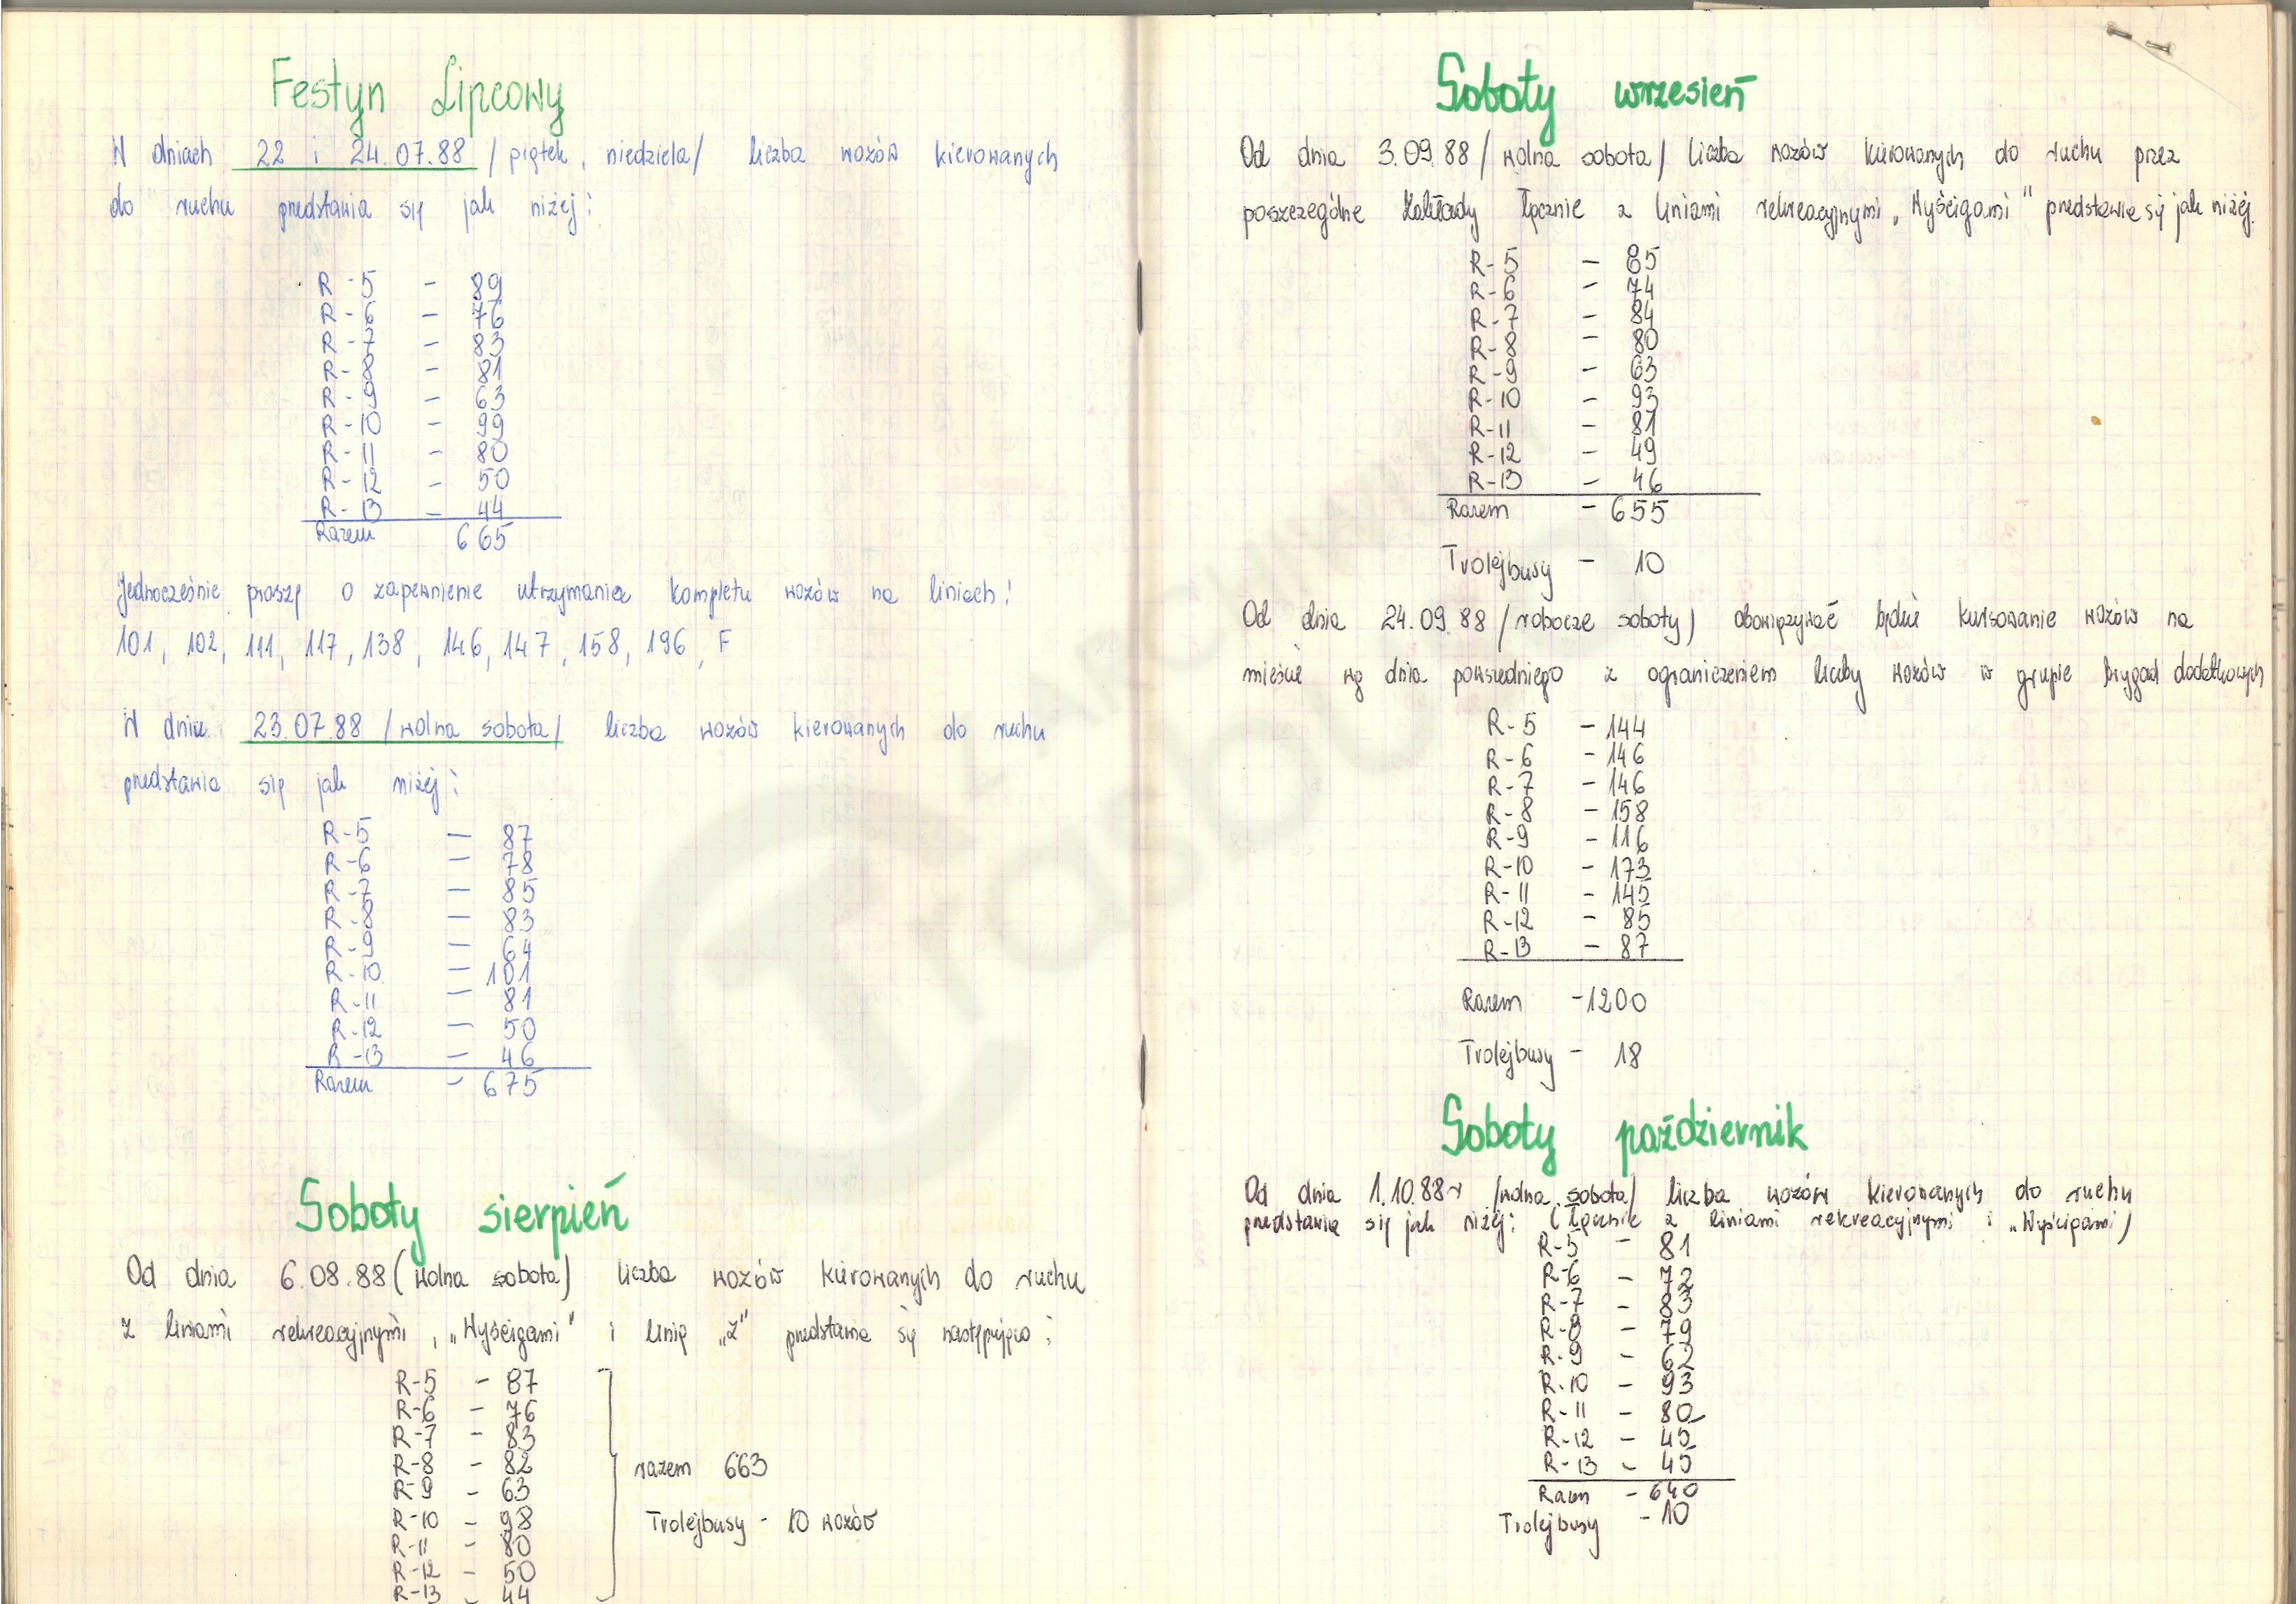 Festyn Lipcowy
W dniach 22 i 24.07.88 / piątek, niedziela/ liczba wozów kierowanych
do ruchu przedstawia się jak niżej:
R-5 - 89
R-6 - 76
R-7 - 83
R-8 - 81
R-9 - 63
R-10 - 99
R-11 - 80
R-12 - 50
R-13 - 44
Razem 665
Jednocześnie proszę o zapewnienie utrzymania kompletu wozów na liniach:
101, 102, 111, 117, 138, 146, 147, 158, 196, F
W dniu 23.07.88 /wolna sobota/ liczba wozów kierowanych do ruchu
przedstawia się jak niżej:
R-5 - 87
R-6 - 78
R-7 - 85
R-8 - 83
R-9 - 64
R-10 - 101
R-11 - 81
R-12 - 50
R-13 - 46
Razem - 675
Soboty sierpień
Od dnia 6.08.88 (wolna sobota) liczba wozów kierowanych do ruchu
z liniami rekreacyjnymi, „Wyścigami" i linię „Z" przedstawia się następująco:
R-5 - 87
R-6 - 76
R-7 - 83
R-8 - 82
R-9 - 63
R-10 - 98
R-11 - 80
R-12 - 50
R-13 - 44
razem 663
Trolejbusy - 10 wozów
Soboty wrzesień
Od dnia 3.09.88 /wolna sobota/ liczba wozów kierowanych do ruchu przez
poszczególne Zakłady łącznie z liniami rekreacyjnymi „Wyścigami" przedstawia się jak niżej.
R-5 - 85
R-6 - 74
R-7 - 84
R-8 - 80
R-9 - 63
R-10 - 93
R-11 - 81
R-12 - 49
R-13 - 46
Razem - 655
Trolejbusy - 10
Od dnia 24.09.88 /robocze soboty) obowiązywać będzie kursowanie wozów na
mieście wg dnia powszedniego z ograniczeniem liczby wozów w grupie brygad dodatkowych
R-5 - 144
R-6 - 146
R-7 - 146
R-8 - 158
R-9 - 116
R-10 - 173
R-11 - 145
R-12 - 85
R-13 - 87
Razem - 1200
Trolejbusy - 18
Soboty październik
Od dnia 1.10.88r /wolna sobota/ liczba wozów kierowanych do ruchu
przedstawia się jak niżej: (łącznie z liniami rekreacyjnymi i „Wyścigami)
R-5 - 81
R-6 - 72
R-7 - 83
R-8 - 79
R-9 - 62
R-10 - 93
R-11 - 80
R-12 - 45
R-13 - 45
Razem - 640
Trolejbusy - 10